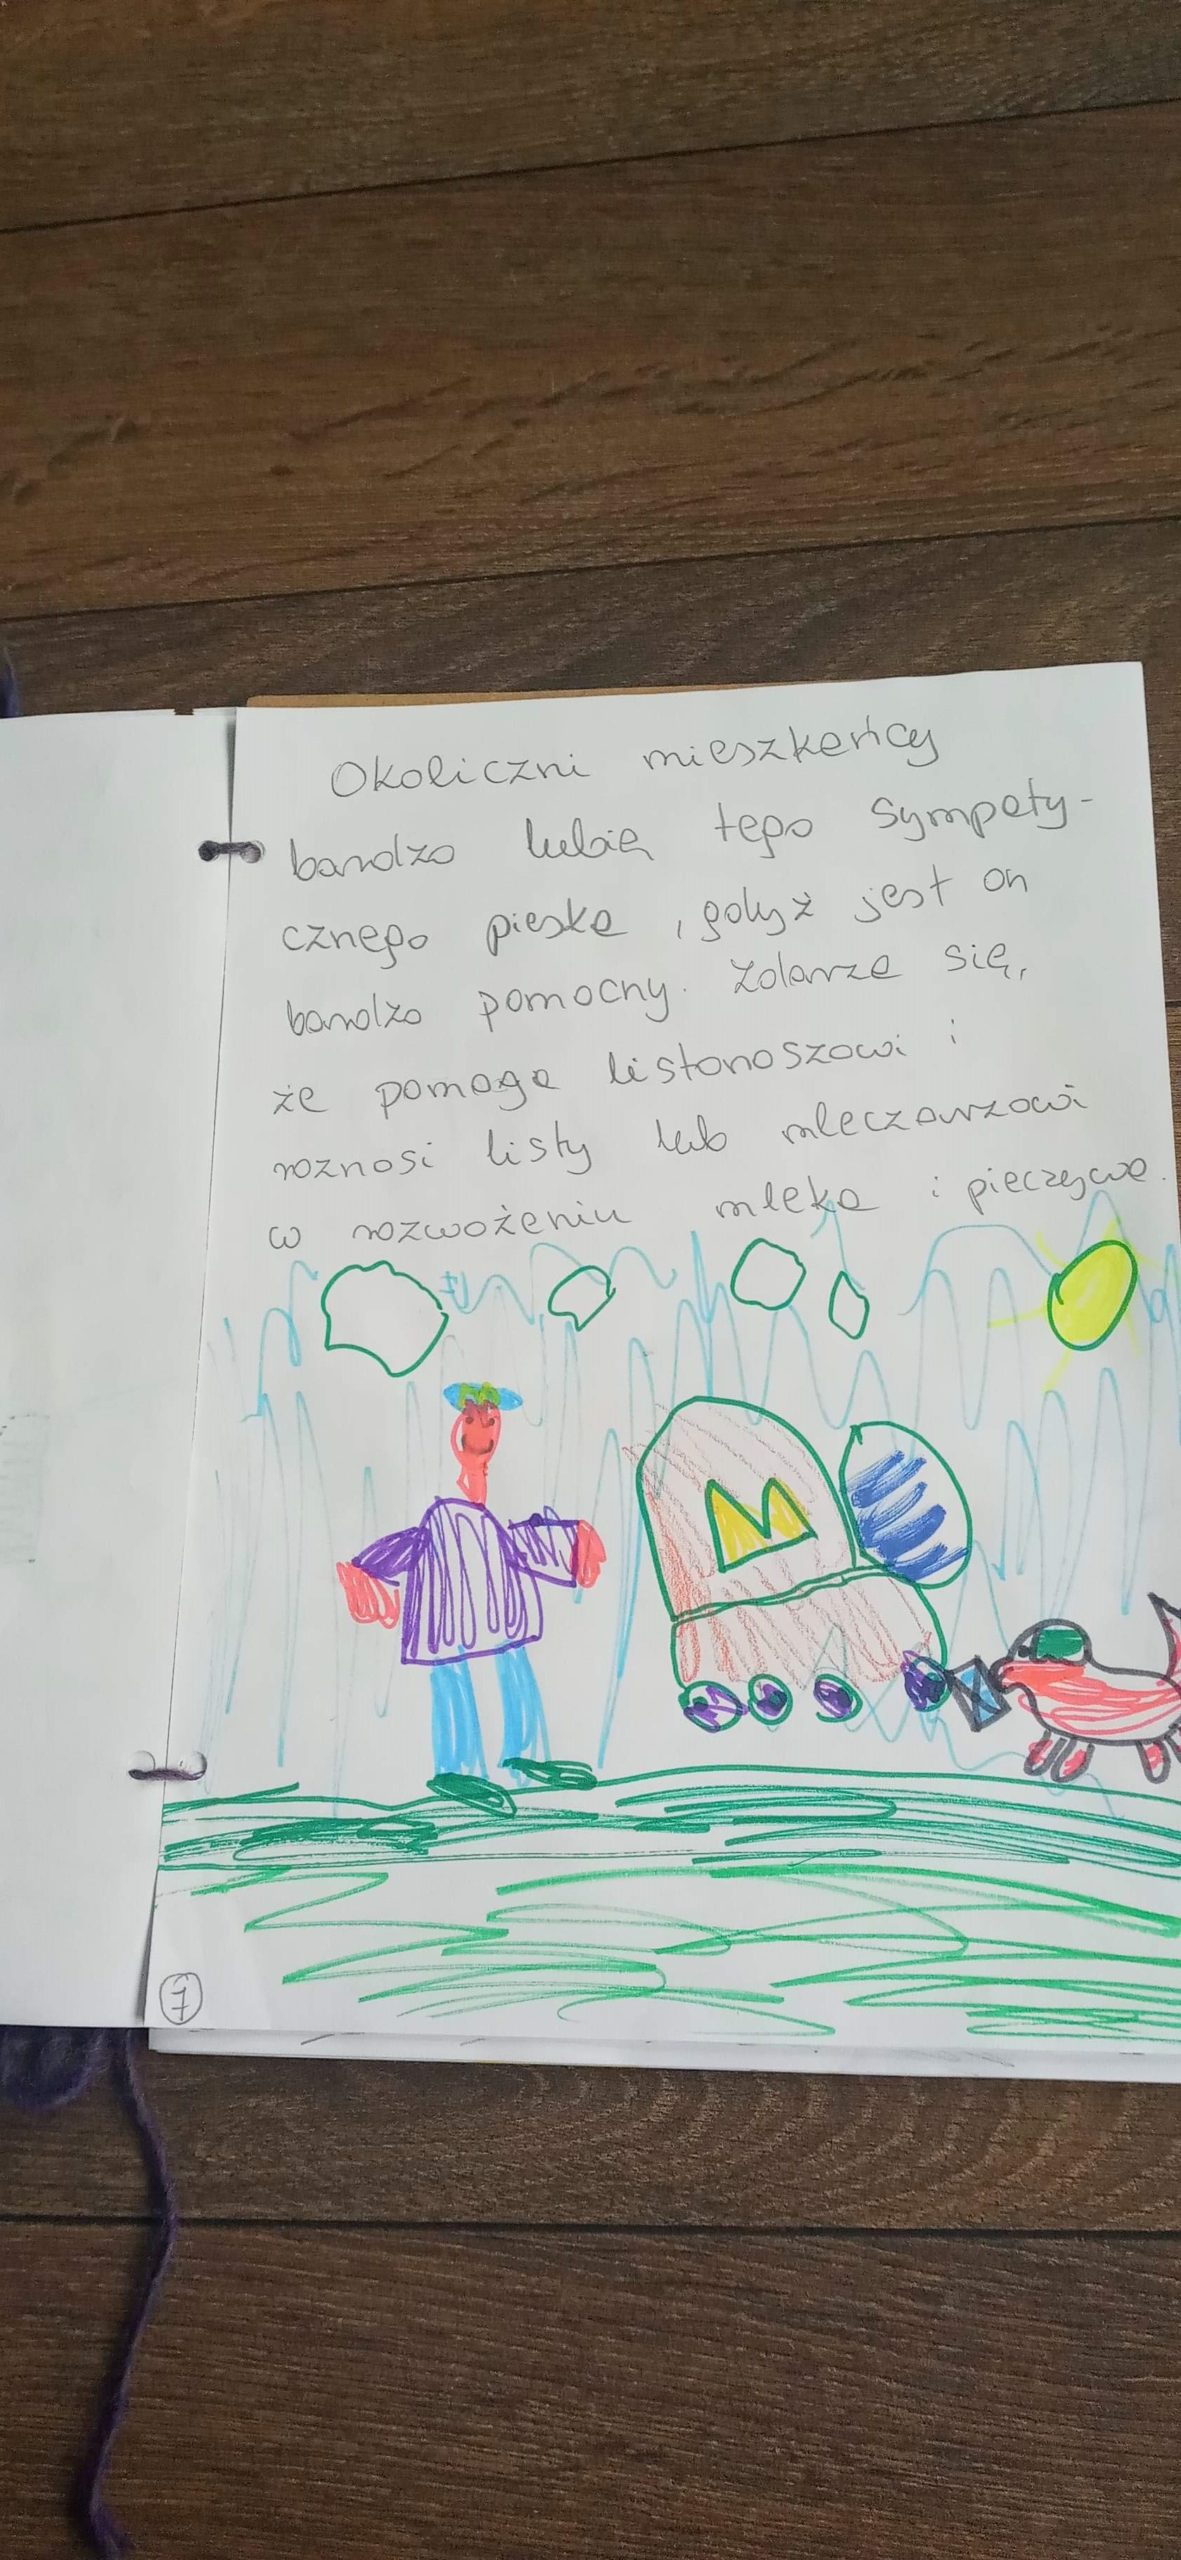 Okoliczni mieszkańcy
bardzo lubią tego sympaty-
cznego pieska, gdyż jest on
bardzo pomocny. Zdarza się,
że pomaga listonoszowi i
roznosi listy lub mleczarzowi
w rozwożeniu mleka i pieczywa.
M
7